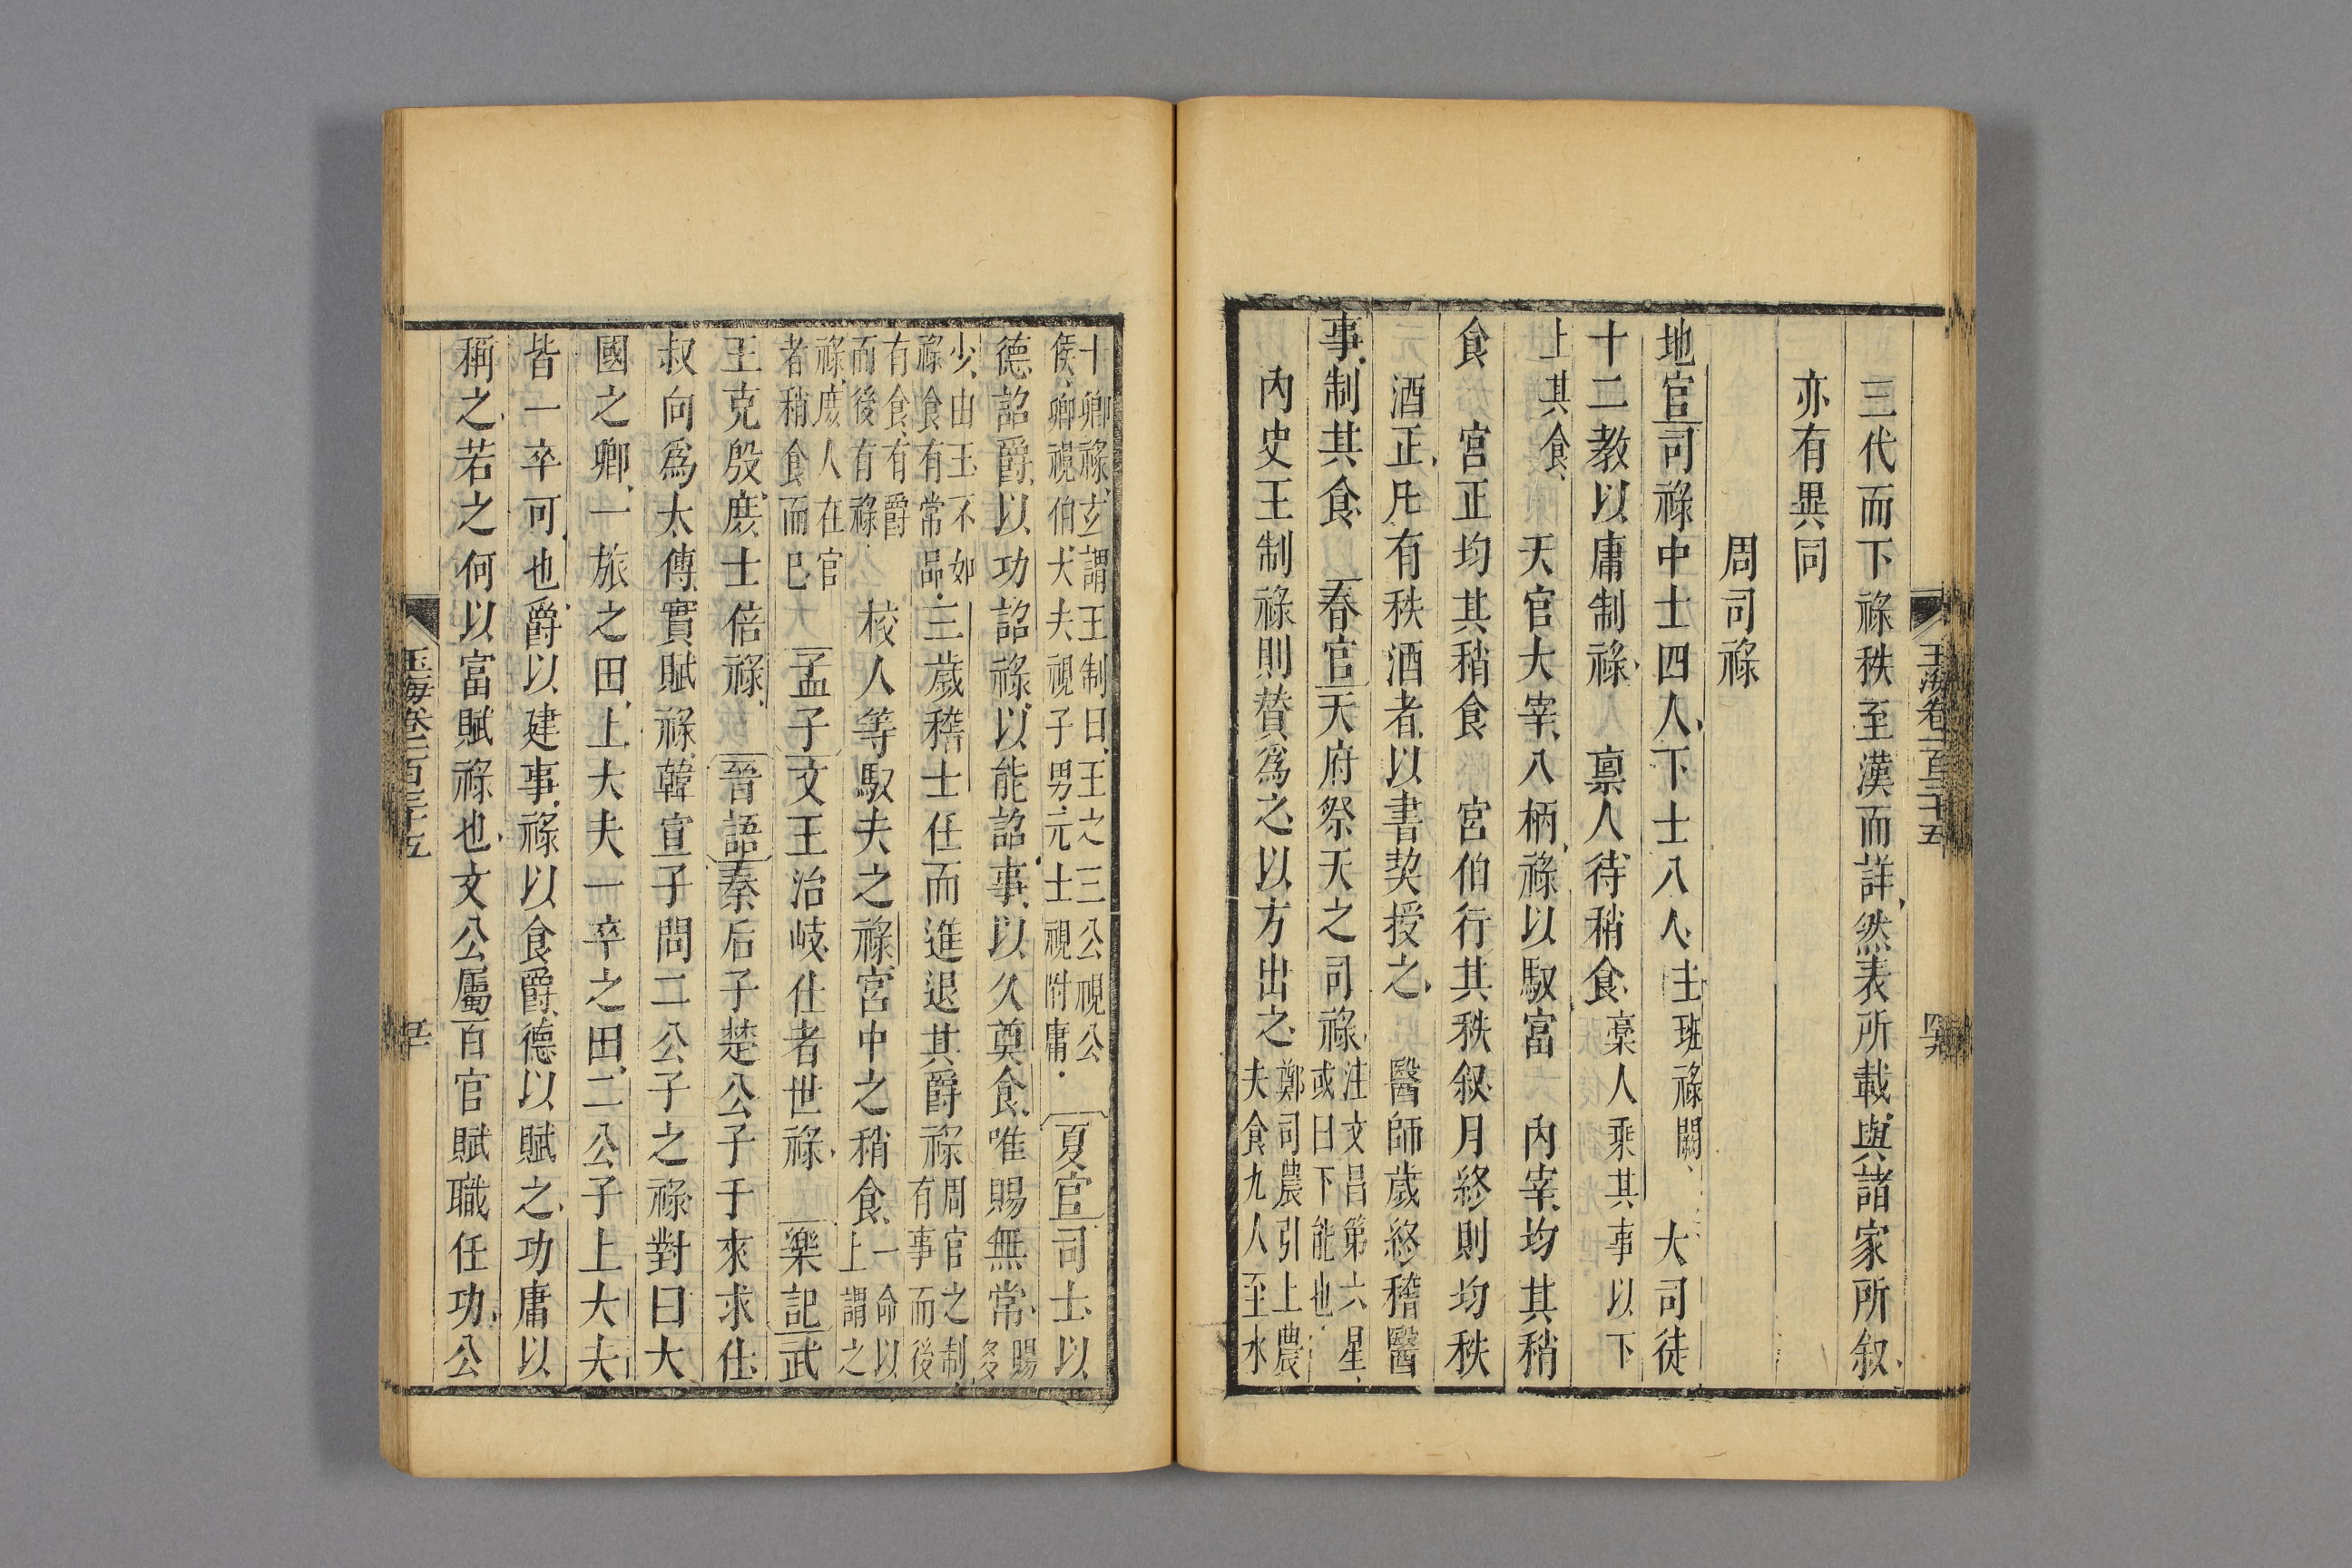 玉海卷一百三十五
三代而下祿秩至漢而詳然表所載與諸家所叙
亦有異同
周司祿
地官司祿中士四人下士八人主班祿闕 大司徒
十二教以庸制祿 稟人待稍食稾人乘其事以下
上其食 天官大宰八柄祿以馭富 內宰均其稍
食 宮正均其稍食 宮伯行其秩叙月終則均秩
酒正凡有秩酒者以書契授之 醫師歲終稽醫
事制其食 春官天府祭天之司祿注文昌第六星
或曰下能也
內史王制祿則贊爲之以方出之鄭司農引上農
夫食九人至水
十卿祿玄謂王制曰王之三公視公
侯卿視伯大夫視子男元士視附庸 夏官司士以
德詔爵以功詔祿以能詔事以久奠食唯賜無常賜
多
少由王不如
祿食有常品三歲稽士任而進退其爵祿周官之制
有事而後
有食有爵
而後有祿 校人等馭夫之祿宮中之稍食一命以
上謂之
祿庶人在官
者稍食而巳 孟子文王治岐仕者世祿 樂記武
王克殷庶士倍祿 晉語秦后子楚公子于來求仕
叔向爲太傅實賦祿韓宣子問二公子之祿對曰大
國之卿一旅之田上大夫一卒之田二公子上大夫
皆一卒可也爵以建事祿以食爵德以賦之功庸以
稱之若之何以富賦祿也文公屬百官賦職任功公
玉海卷一百三十五